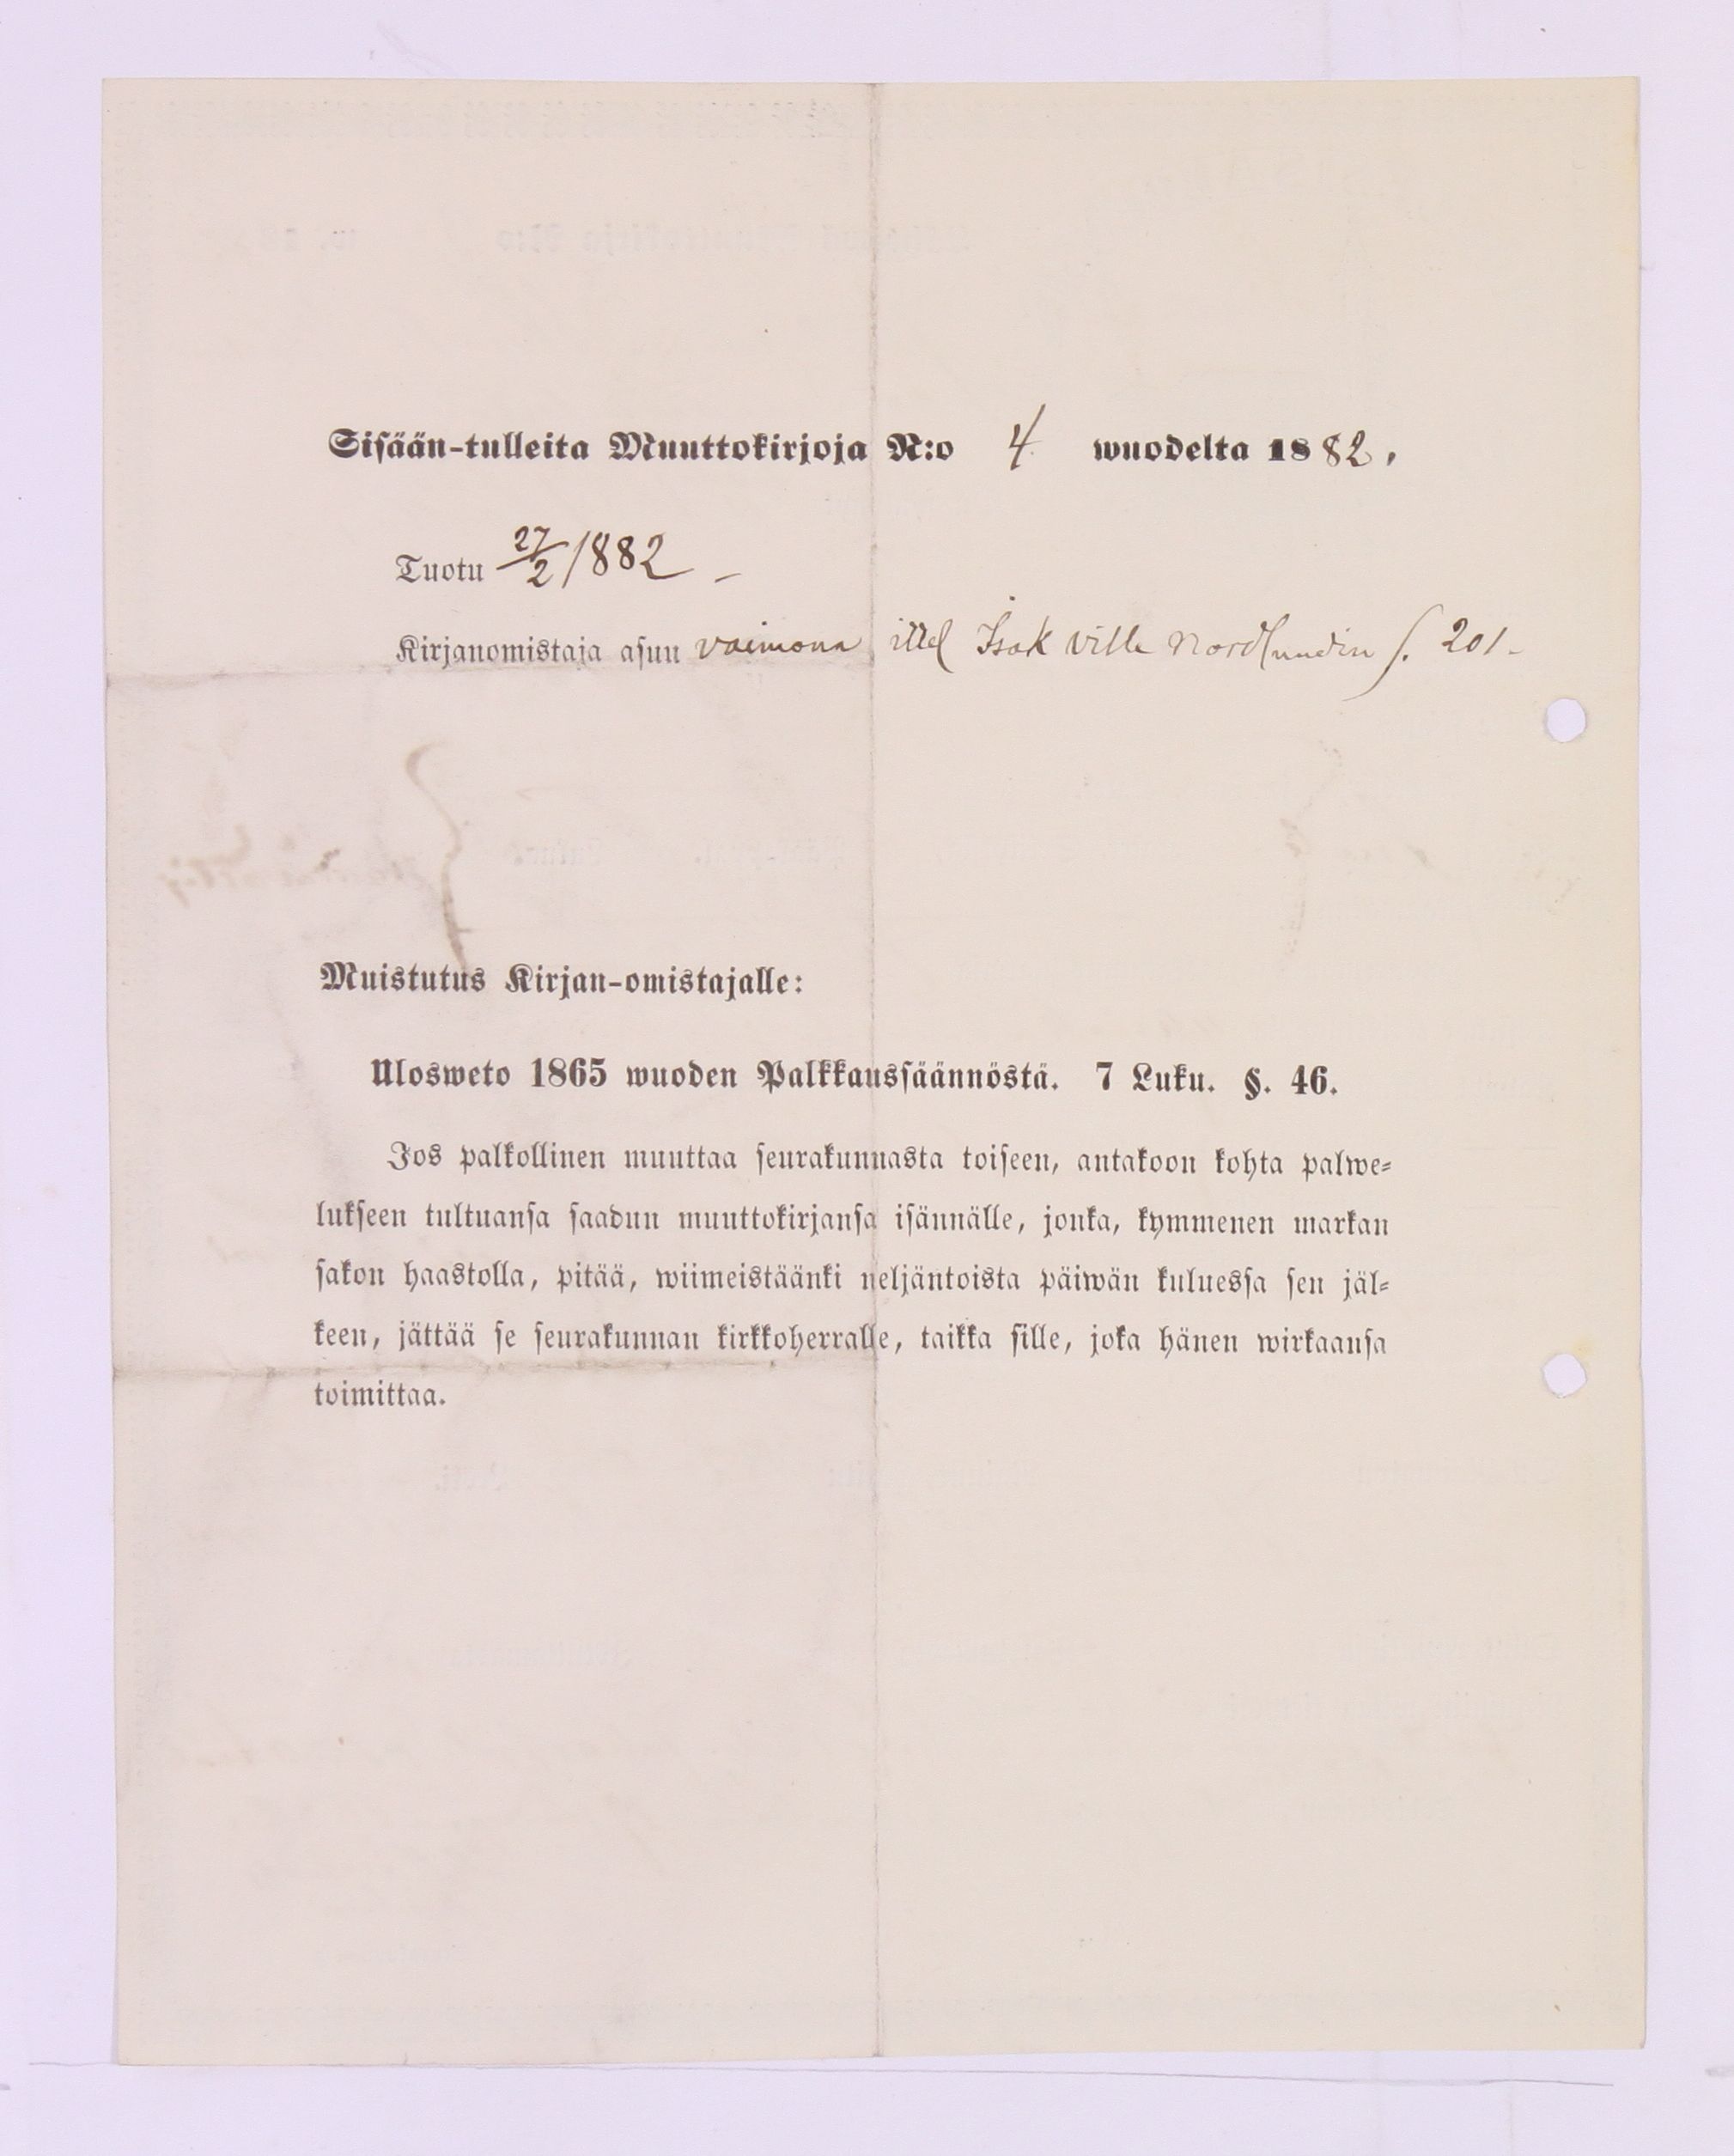 Sisään-tulleita Muuttokirjoja N:o 4 wuodelta 1882.
Tuotu 27/2 1882 –
Kirjanomistaja asuu vaimona Isak Ville Nordlundin S. 201–
Muistutus Kirjan-omistajalle:
Ulosweto 1865 wuoden Palkkaussäännöstä. 7 Luku. §. 46.
Jos palkollinen muuttaa seurakunnasta toiseen, antakoon kohta palwe-
lukseen tultuansa saadun muuttokirjansa isännälle, jonka, kymmenen markan
sakon haastolla, pitää, wiimeistäänki neljäntoista päiwän kuluessa sen jäl-
keen, jättää se seurakunnan kirkkoherralle, taikka sille, joka hänen wirkaansa
toimittaa.